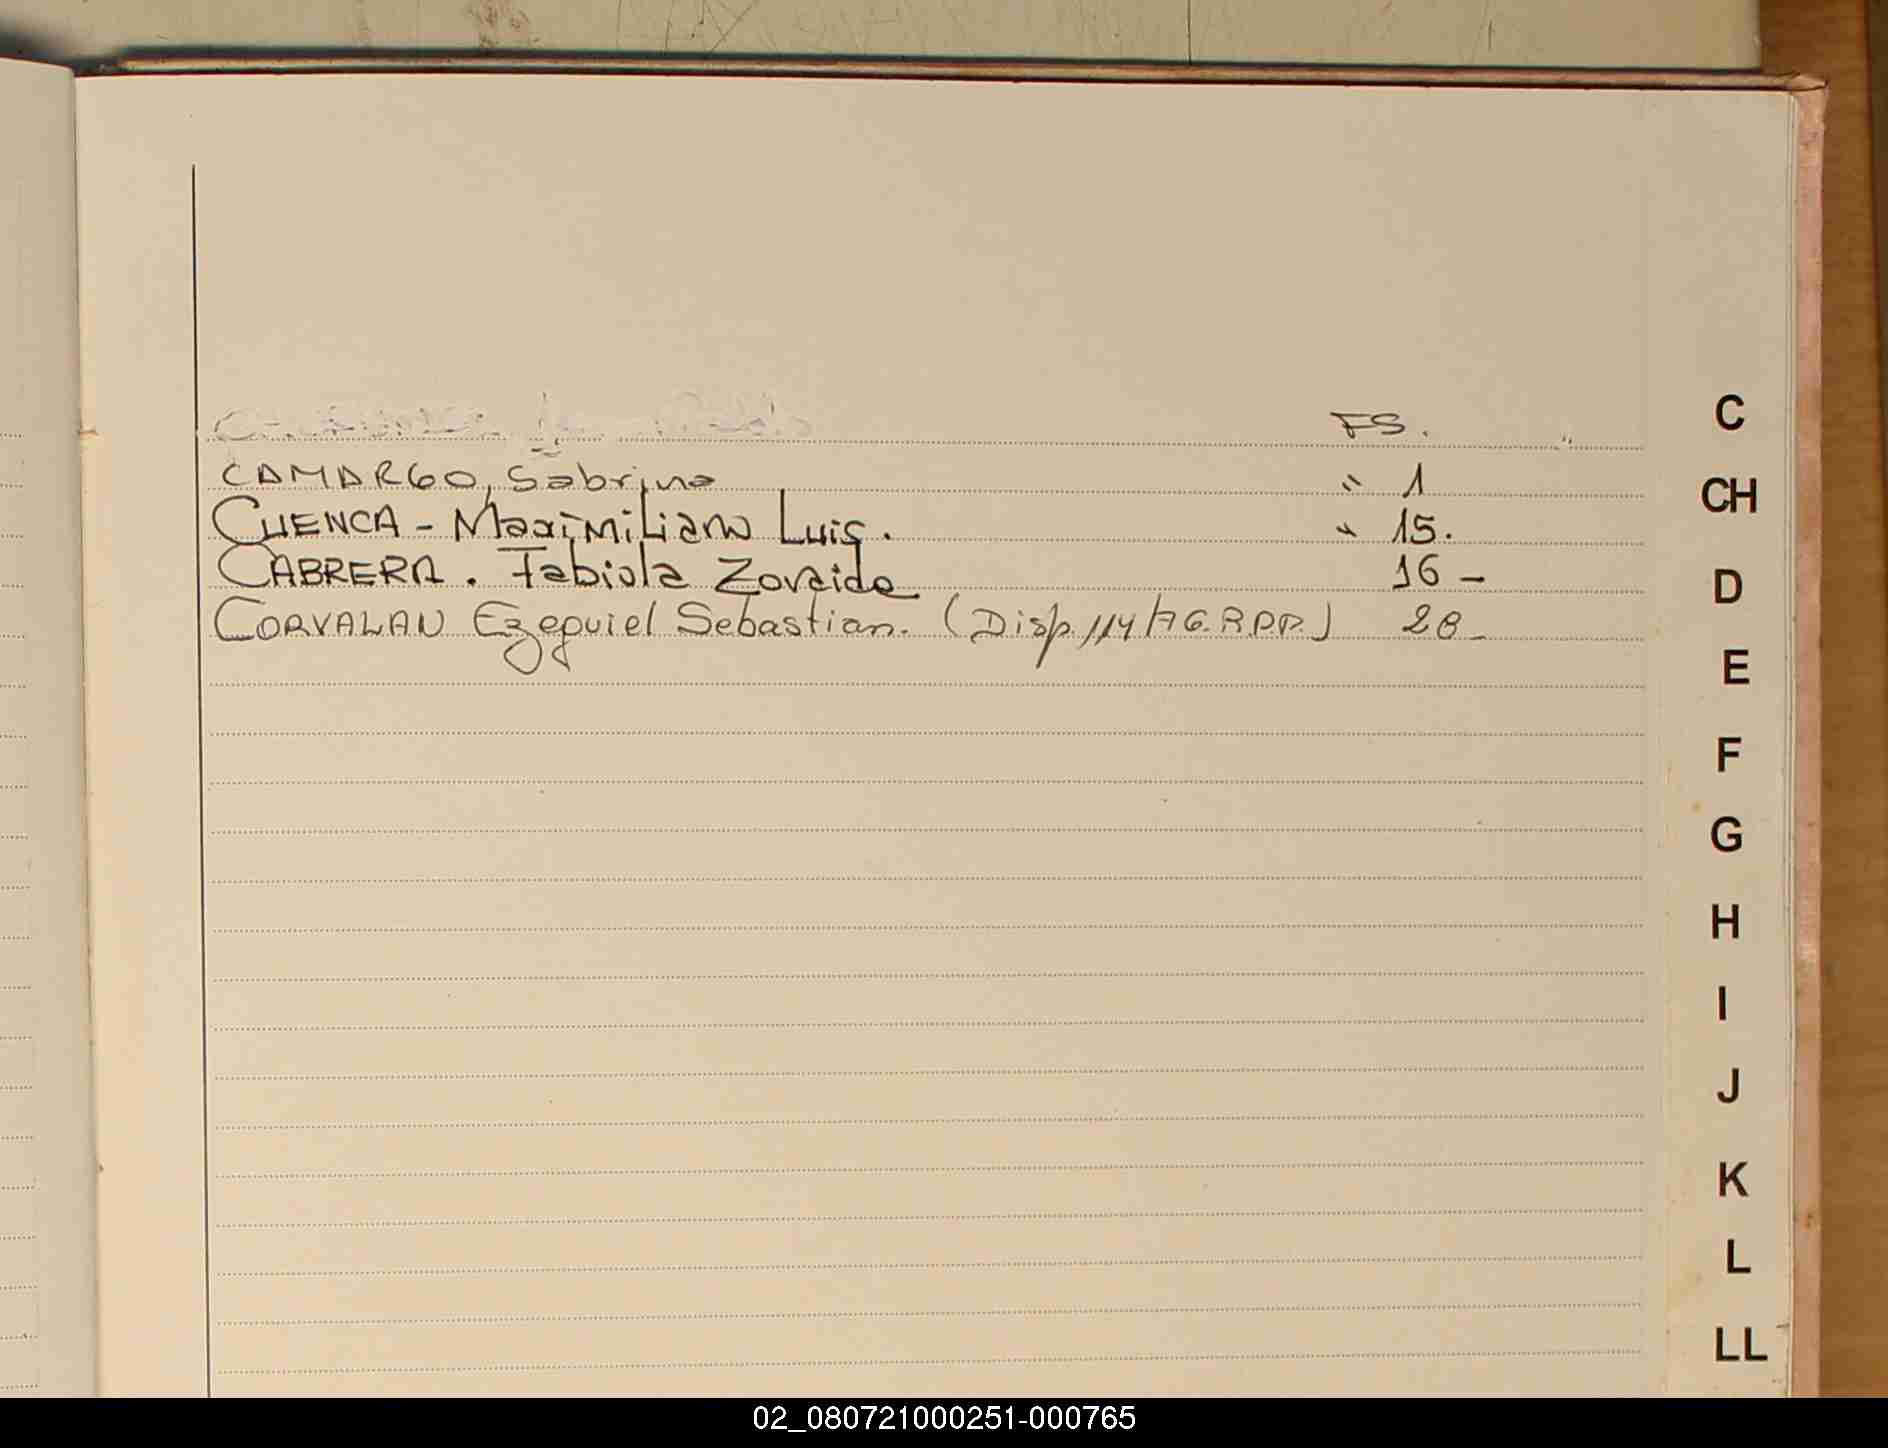 FS.
CAMARGO, Sabrina " 1
CUENCA - Maximiliano Luis. " 15.
CABRERA. Fabiola Zoraida 16 -
CORVALAN Ezequiel Sebastian. (Disp. 114/76.R.P.P.) 28 -
C
CH
D
E
F
G
H
I
J
K
L
LL
02_080721000251-000765